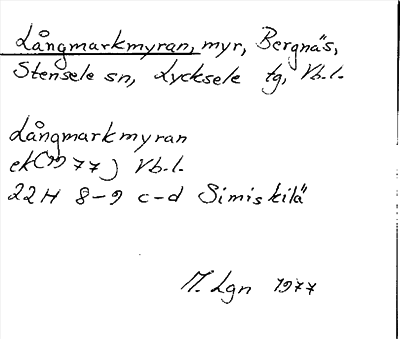 Långmarkmyran, myr, Bergnäs,
Stensele sn, Lycksele tg, Vb.l.
Långmarkmyran
ek(1977) Vb.l.
22H 8-9 c-d Simiskilä
M. Lgn 1977